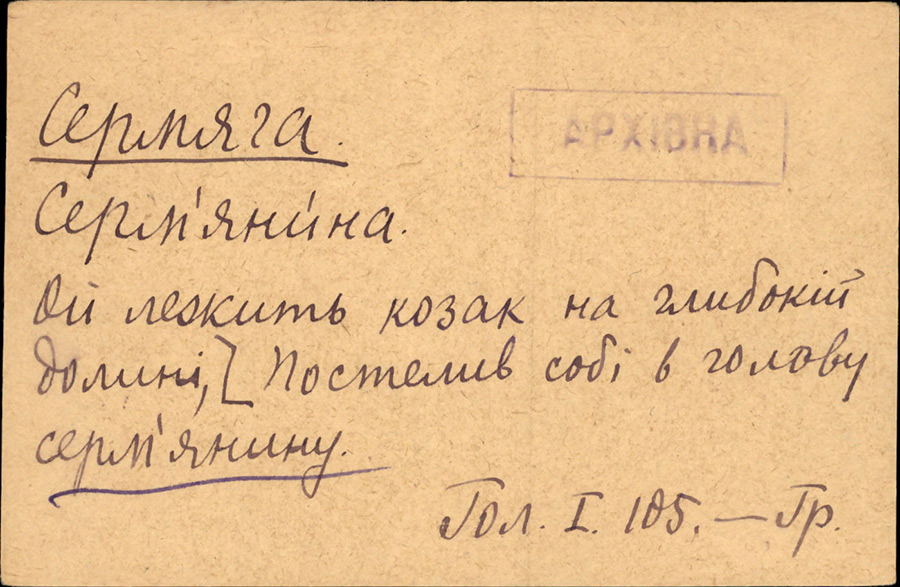 Сермяга.
АРХІВНА
Серм'яни́на.
Ой лежить козак на глибокій
долині,[ Постелив собі в голову
серм'янину.
Гол. I. 105. — Гр.